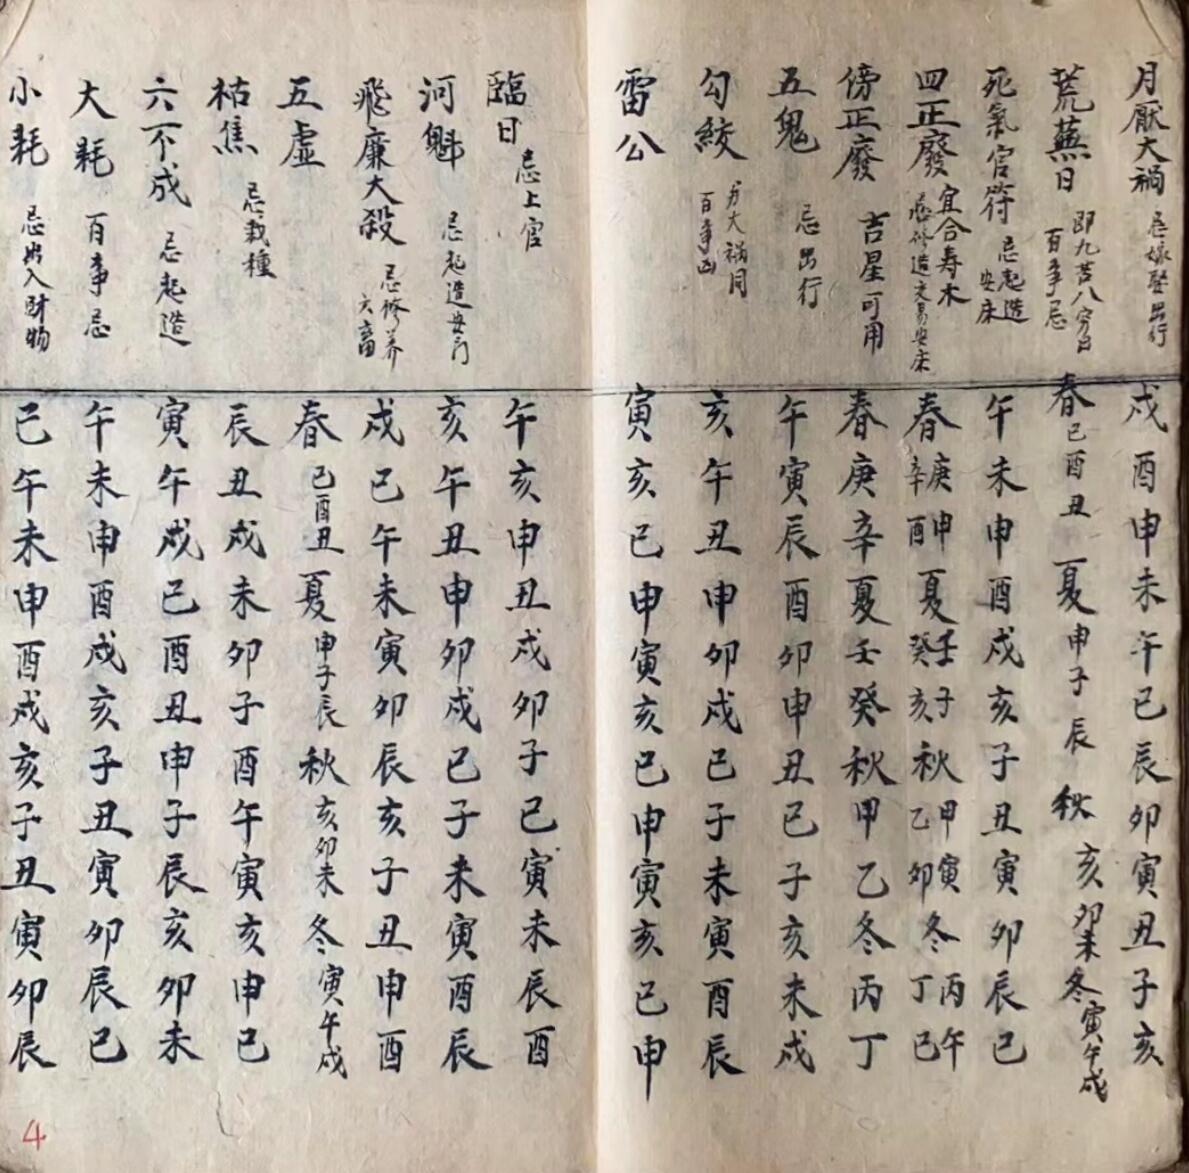 月厭大禍 忌嫁娶出行 戌酉申未午巳辰卯寅丑子亥
荒蕪日 即九苦八窮日 百事忌 春巳酉丑 夏申子辰 秋亥卯未 冬寅午戌
死氣官符 忌起造安床 午未申酉戌亥子丑寅卯辰巳
四正廢 宜合寿木 忌修造交易安床 春庚申辛酉 夏壬子癸亥 秋甲寅乙卯 冬丙午丁巳
傍正廢 吉星可用 春庚辛夏壬癸秋甲乙冬丙丁
五鬼 忌出行 午寅辰酉卯申丑巳子亥未戌
勾絞 与大禍同 百事凶 亥午丑申卯戌巳子未寅酉辰
雷公 寅亥巳申寅亥巳申寅亥巳申
臨日 忌上官 午亥申丑戌卯子巳寅未辰酉
河魁 忌起造安門 亥午丑申卯戌巳子未寅酉辰
飛廉大殺 忌修养六畜 戌巳午未寅卯辰亥子丑申酉
五虛 春巳酉丑 夏申子辰 秋亥卯未 冬寅午戌
枯焦 忌栽種 辰丑戌未卯子酉午寅亥申巳
六不成 忌起造 寅午戌巳酉丑申子辰亥卯未
大耗 百事忌 午未申酉戌亥子丑寅卯辰巳
小耗 忌出入財物 巳午未申酉戌亥子丑寅卯辰
4